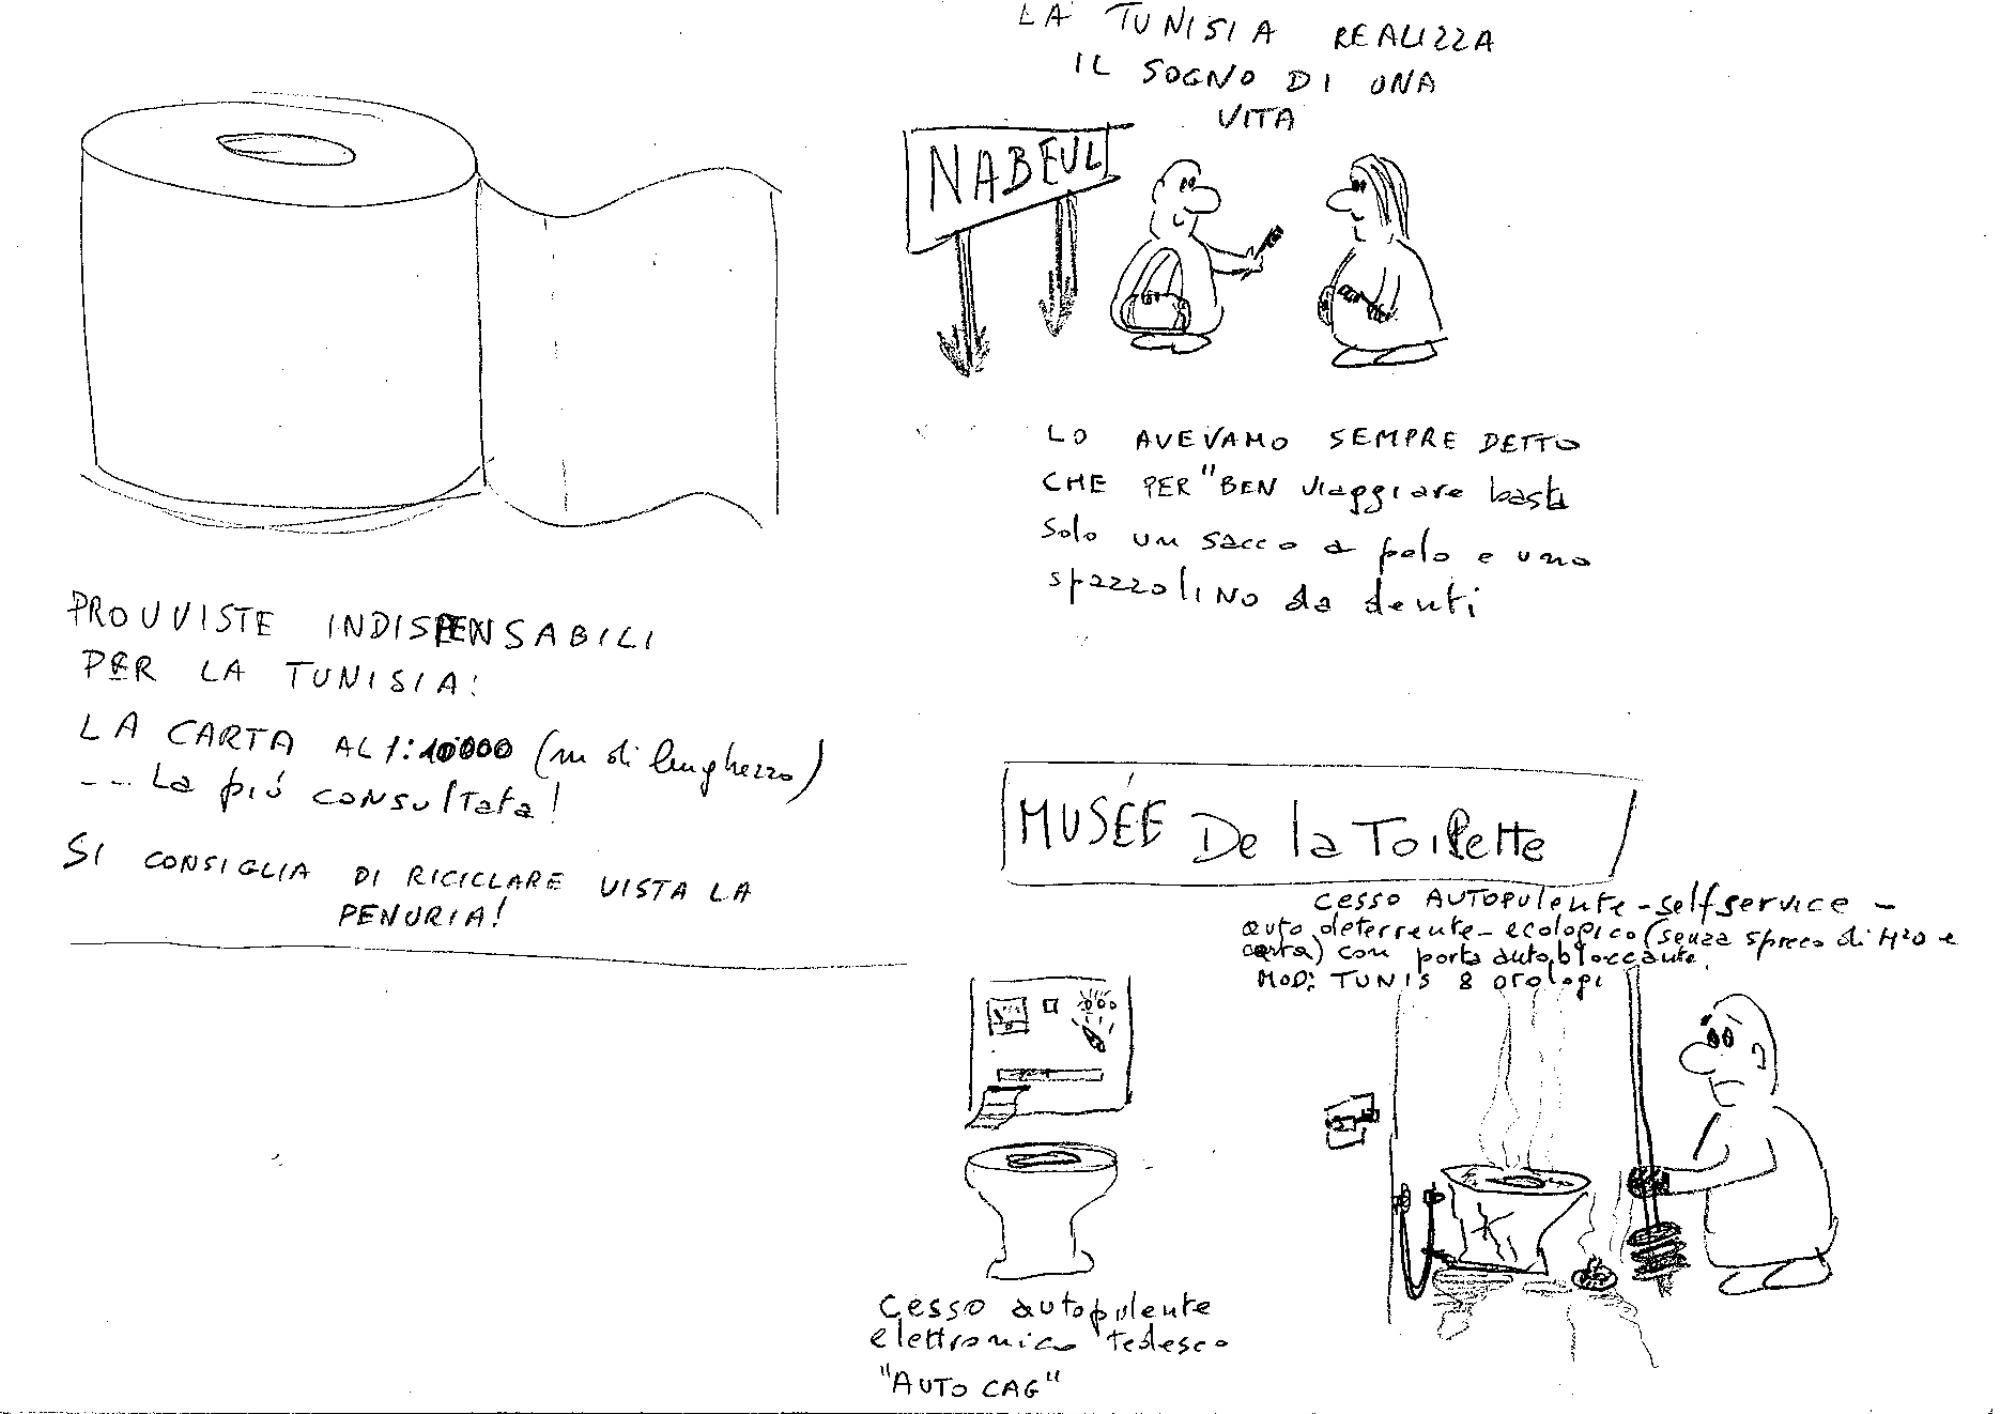 PROVVISTE INDISPENSABILI
PER LA TUNISIA:
LA CARTA AL 1:10000 (m di lunghezza)
--- La più consultata!
SI CONSIGLIA DI RICICLARE VISTA LA
PENURIA!
LA TUNISIA REALIZZA
IL SOGNO DI UNA
VITA
NABEUL
LO AVEVAMO SEMPRE DETTO
CHE PER "BEN viaggiare basta
solo un sacco a pelo e uno
spazzolino da denti
MUSÉE De la ToilEtte
cesso AUTOPUlente - selfservice -
auto deterrente - ecologico (senza spreco di H2O e
carta) con porta autobloccante.
MOD: TUNIS 8 orologi
cesso autopulente
elettronico tedesco
"AUTO CAG"